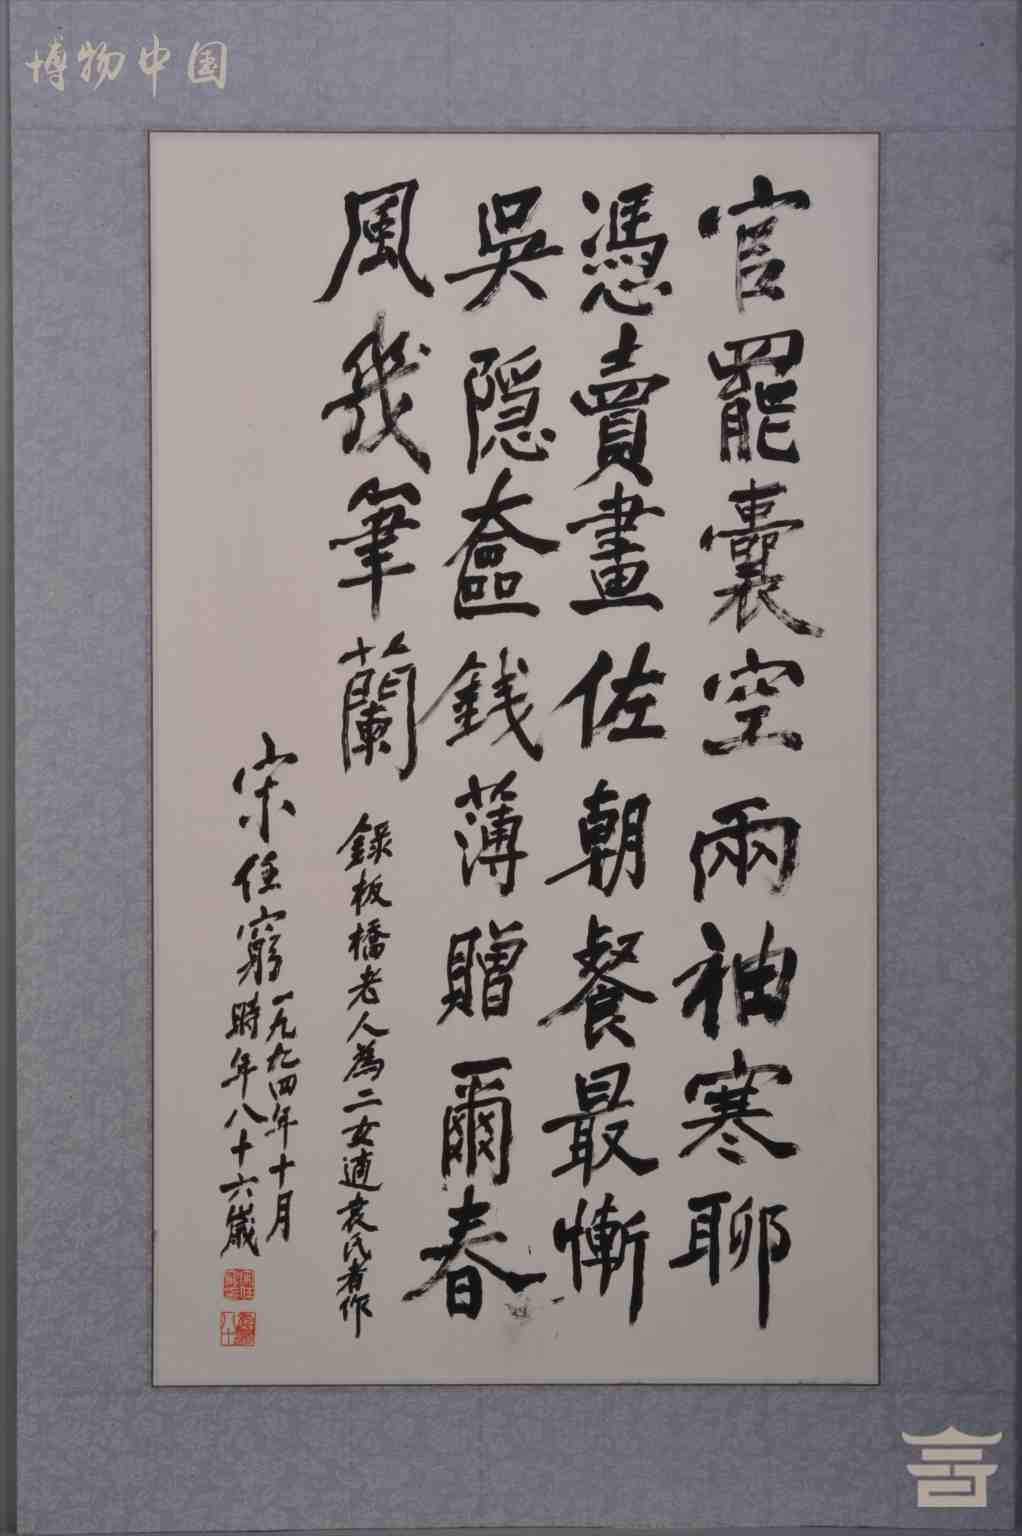 博物中国
官罷囊空兩袖寒聊
憑賣畫佐朝餐最慚
吳隱奩錢薄贈爾春
風幾筆蘭
錄板橋老人為二女適袁氏者作
宋任窮
一九九四年十月
時年八十六歲